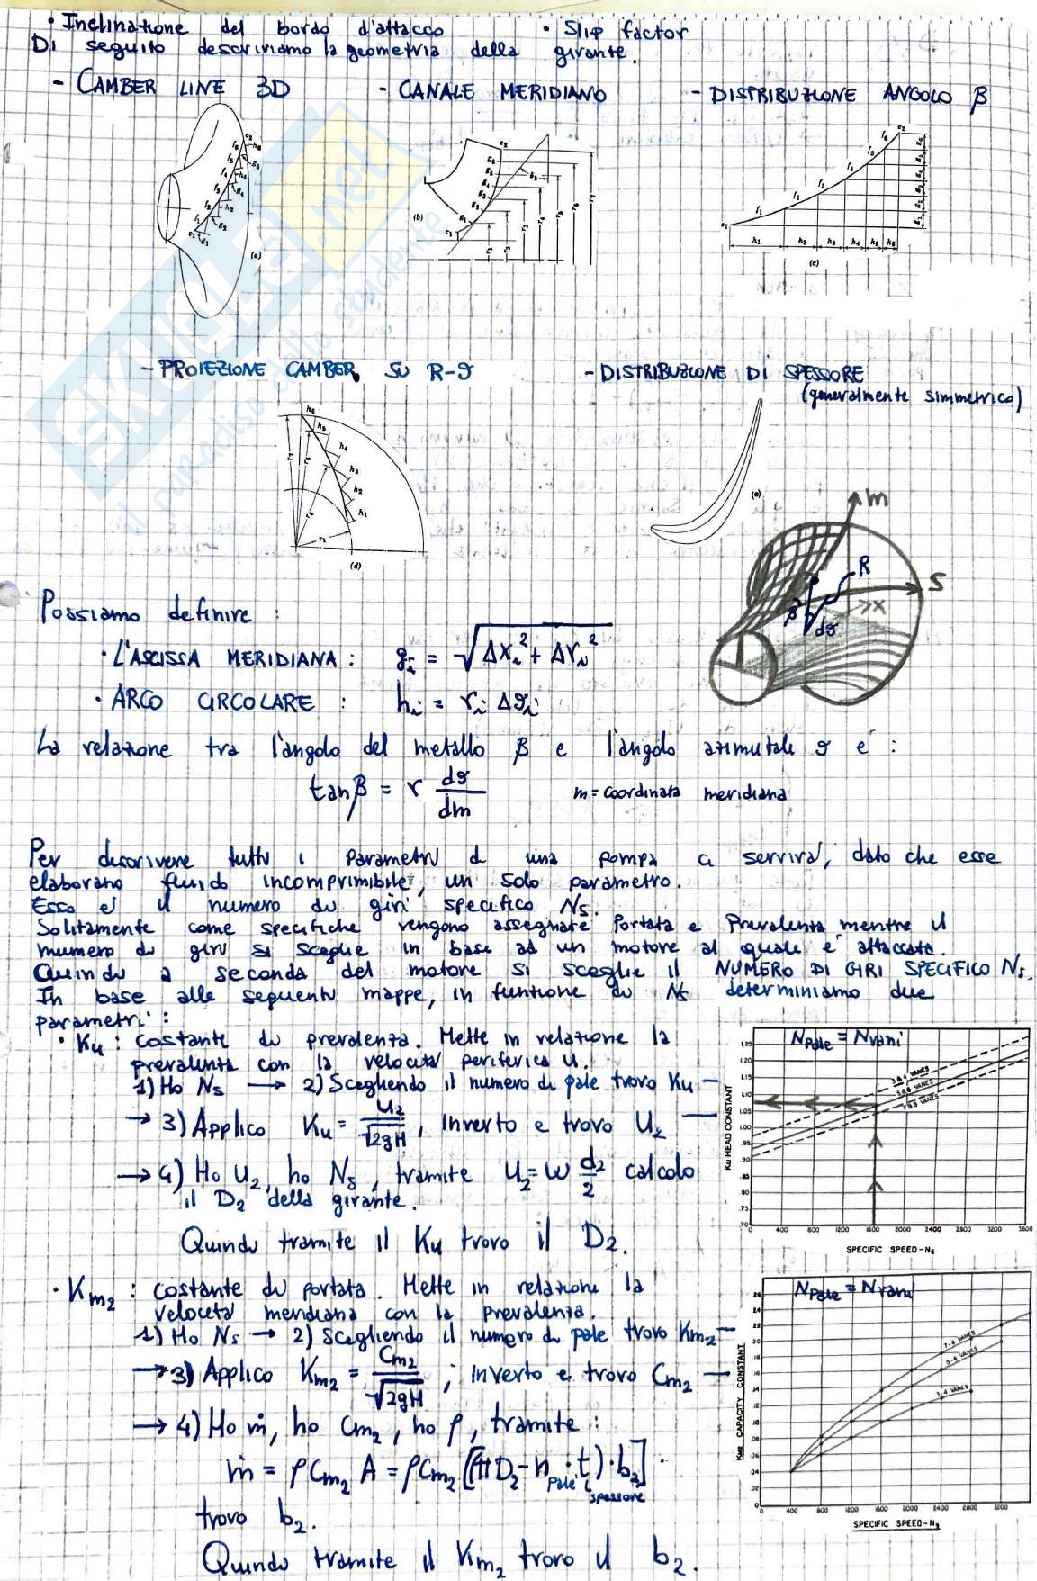 • Inclinazione del bordo d'attacco • Slip factor
Di seguito descriviamo la geometria della girante.
- CAMBER LINE 3D - CANALE MERIDIANO - DISTRIBUZIONE ANGOLO β
(a) (b) (c)
- PROIEZIONE CAMBER SU R-ϑ - DISTRIBUZIONE DI SPESSORE
(generalmente simmetrico)
(d) (e)
m
R
S
β
x
dϑ
Possiamo definire :
• L'ASCISSA MERIDIANA : gᵢ = √Δxᵢ² + Δrᵢ²
• ARCO CIRCOLARE : hᵢ = rᵢ Δϑᵢ
La relazione tra l'angolo del metallo β e l'angolo azimutale ϑ e' :
tanβ = r dϑ/dm m = coordinata meridiana
Per descrivere tutti i parametri di una pompa ci servira', dato che esse
elaborano fluido incomprimibile, un solo parametro.
Esso e' il numero di giri specifico Ns.
Solitamente come specifiche vengono assegnate Portata e Prevalenza mentre il
numero di giri si sceglie in base ad un motore al quale e' attaccata.
Quindi a seconda del motore si sceglie il NUMERO DI GIRI SPECIFICO Ns.
In base alle seguenti mappe, in funzione di Ns determiniamo due
parametri :
• Ku : costante di prevalenza. Mette in relazione la
prevalenza con la velocita' periferica u.
1) Ho Ns → 2) Scegliendo il numero di pale trovo Ku —
→ 3) Applico Ku = u₂/√2gH, inverto e trovo U₂ —
→ 4) Ho U₂, ho Ns, tramite U₂ = ω d₂/2 calcolo
il D₂ della girante.
Quindi tramite il Ku trovo il D₂.
Npale = Nvani
Ku HEAD CONSTANT
0 400 800 1200 1600 2000 2400 2800 3200 3600
SPECIFIC SPEED - Ns
• Km₂ : costante di portata. Mette in relazione la
velocita' meridiana con la prevalenza.
1) Ho Ns → 2) Scegliendo il numero di pale trovo Km₂ —
→ 3) Applico Km₂ = Cm₂/√2gH ; inverto e trovo Cm₂ —
→ 4) Ho ṁ, ho Cm₂, ho ρ, tramite :
ṁ = ρCm₂ A = ρCm₂ [(πD₂ - n pale · t spessore) · b₂]
trovo b₂.
Quindi tramite il Km₂ trovo il b₂.
Npale = Nvani
CAPACITY CONSTANT
0 400 800 1200 1600 2000 2400 2800
SPECIFIC SPEED - Ns